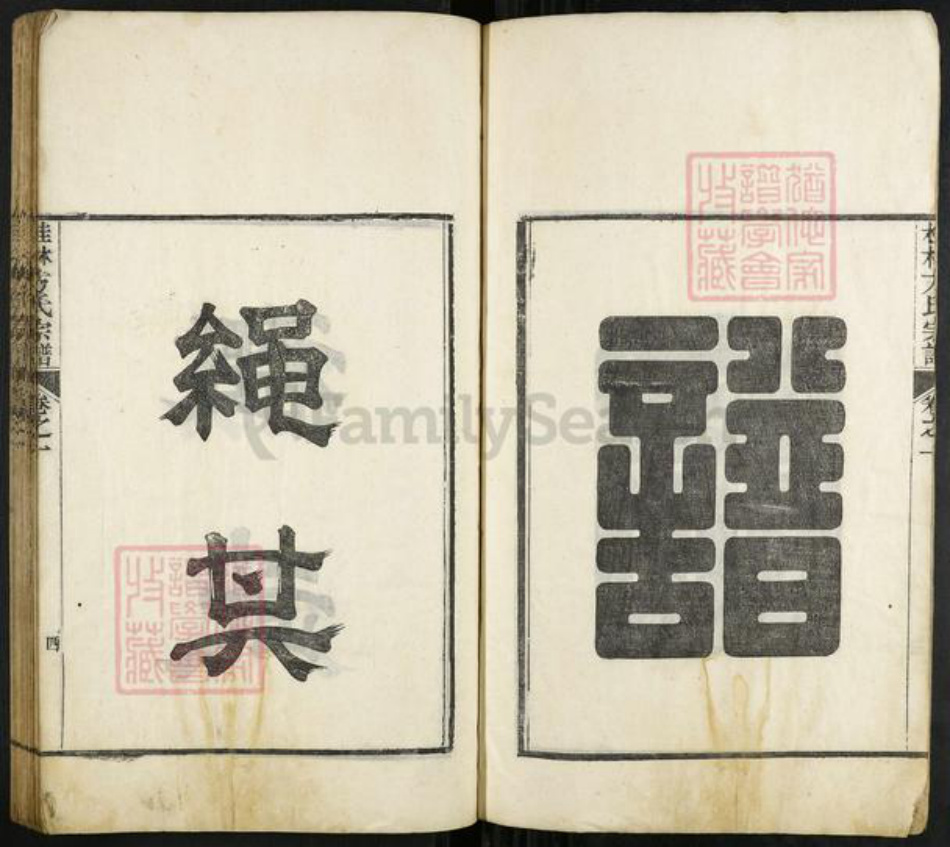 桂林方氏宗譜
卷之一
譜
猶他家
譜學會
收藏
繩
其
桂林方氏宗譜
卷之一
四
猶他家
譜學會
收藏
FamilySearch